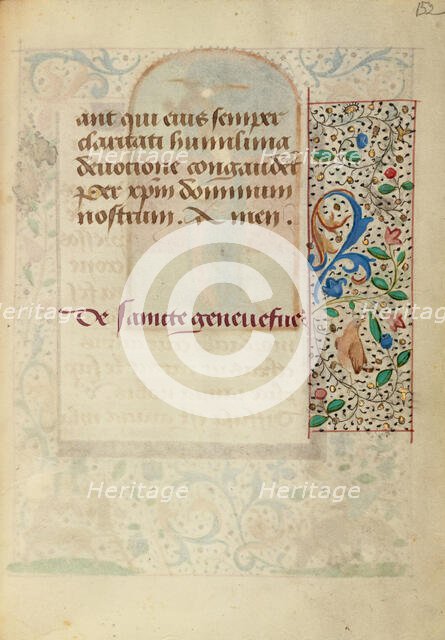 152
ant qui eius semper
claritati humilima
devotione congaudet
Per xpm dominum
nostrum. Amen.
De sancte geneuefue
Heritage Heritage Heritage
Heritage Heritage Heritage
Heritage Heritage Heritage